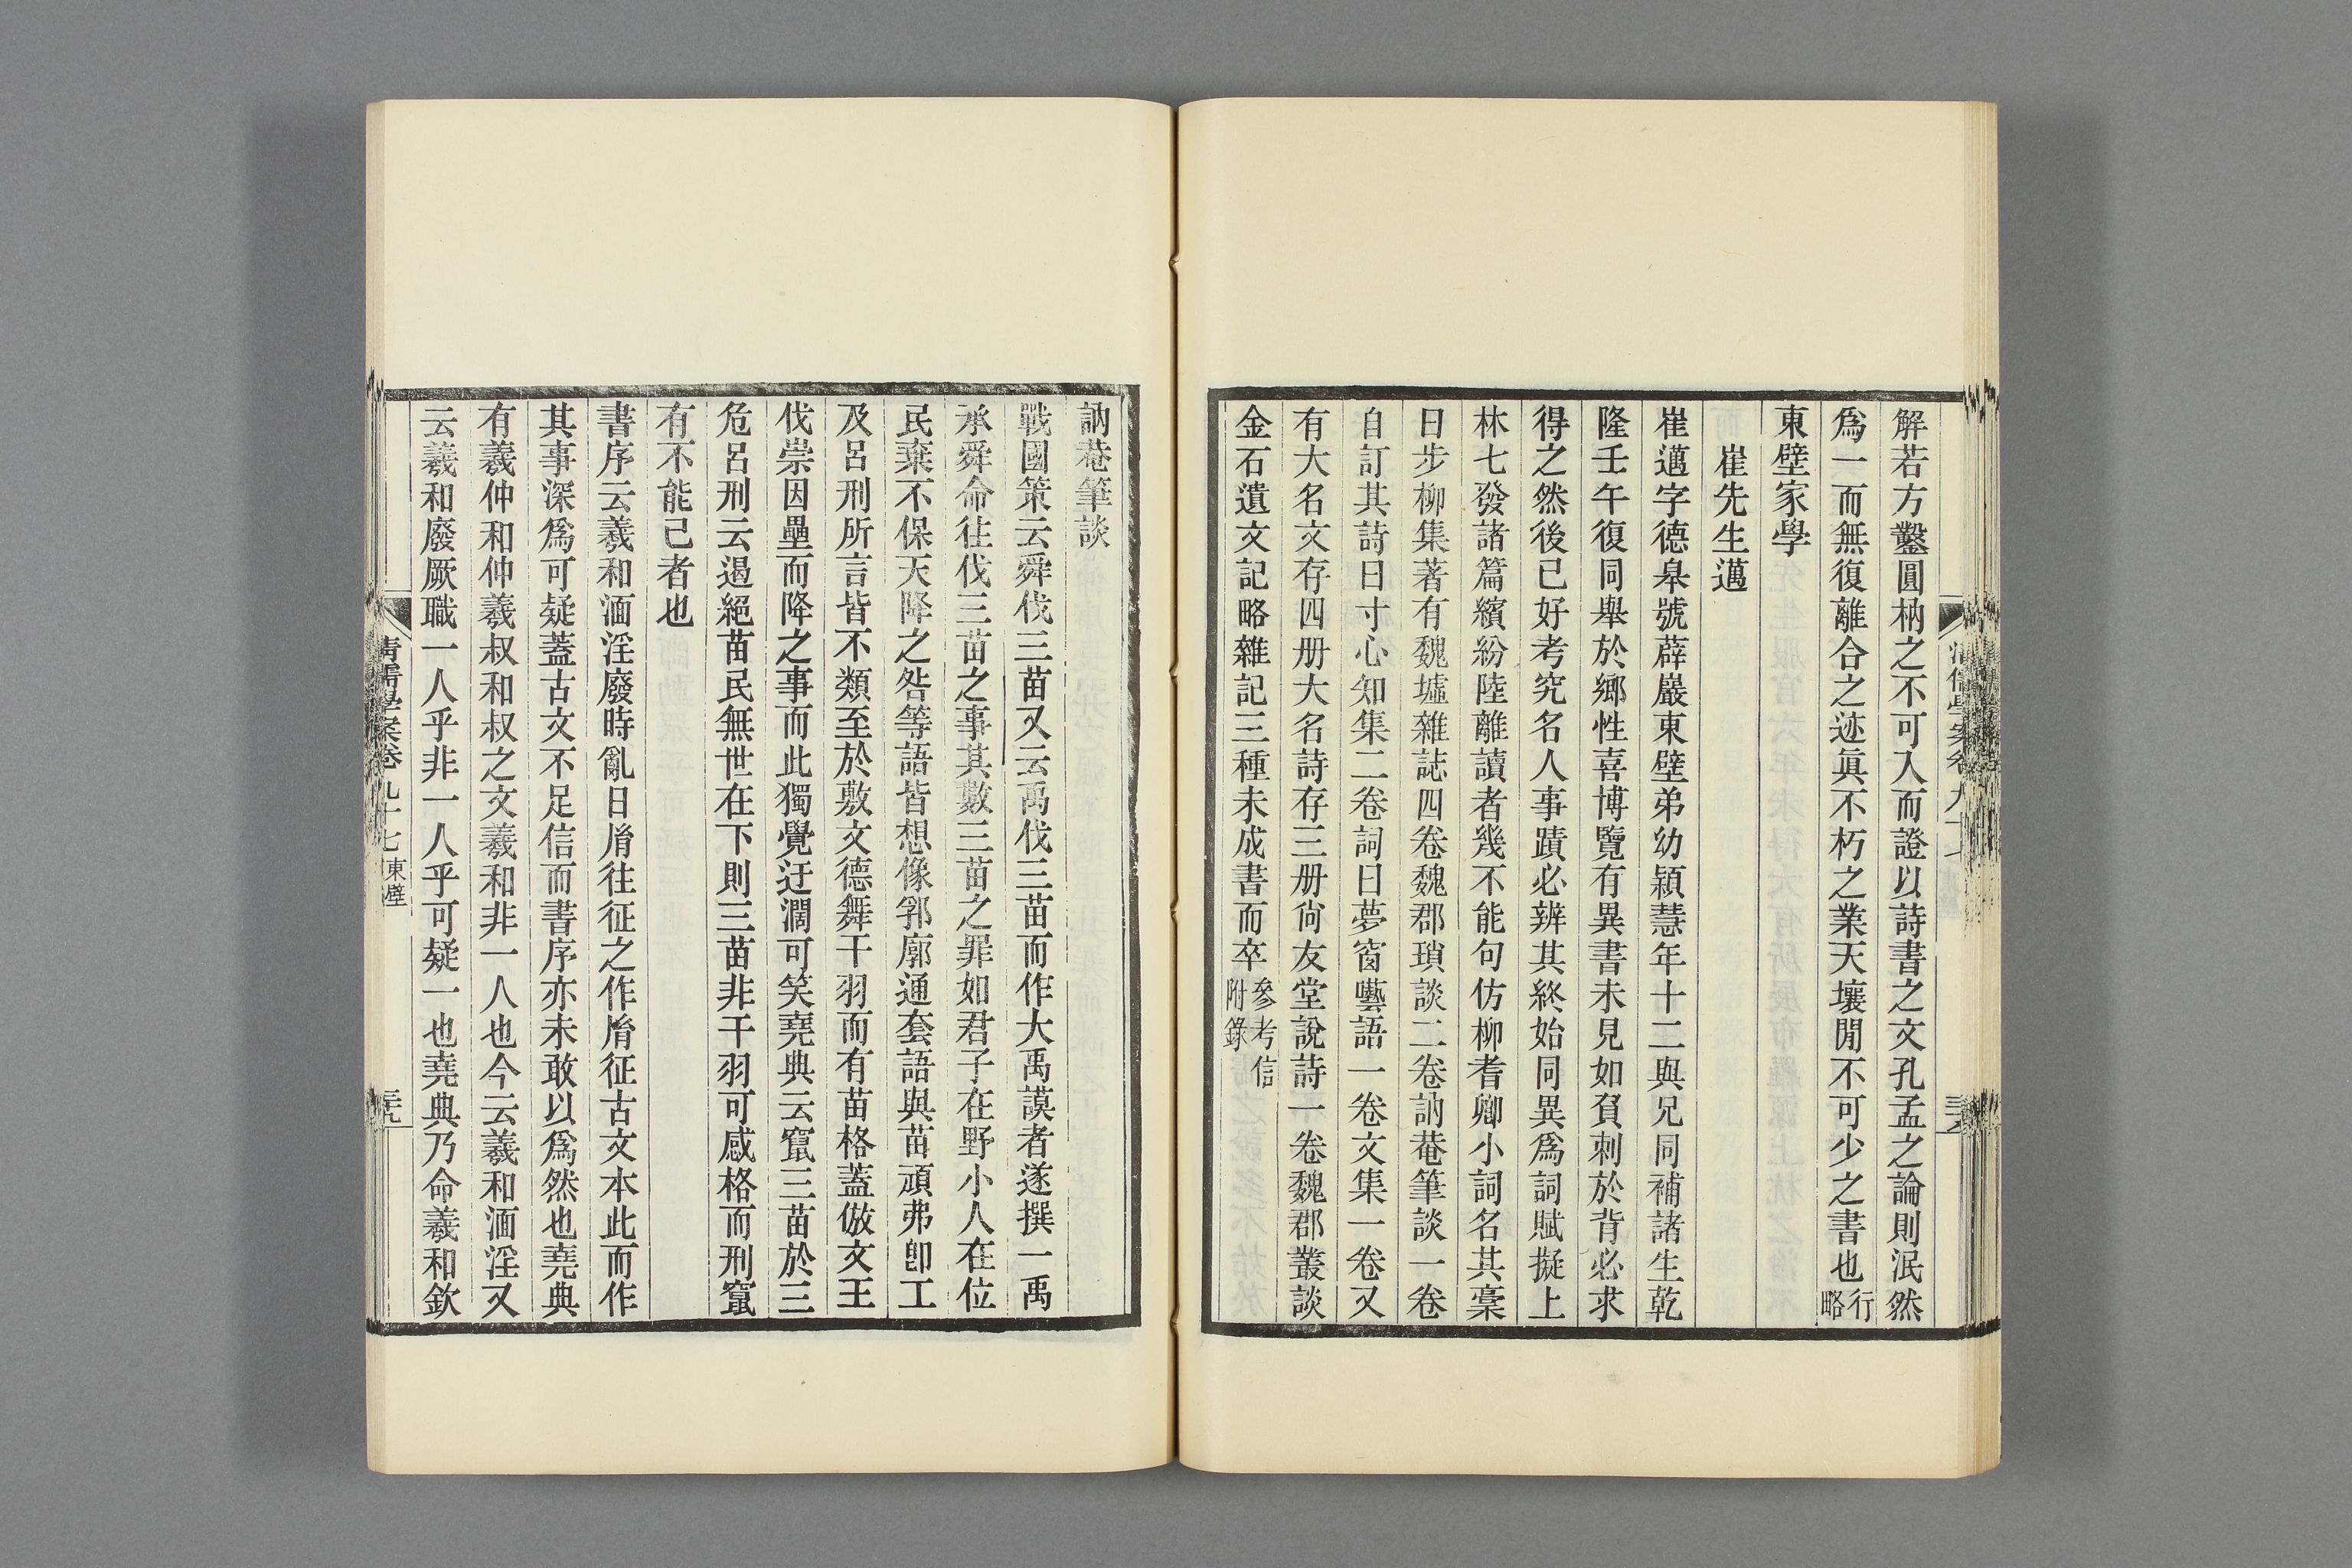 解若方鑿圓枘之不可入而證以詩書之文孔孟之論則泯然
爲一而無復離合之迹眞不朽之業天壤閒不可少之書也行略
東壁家學
崔先生邁
崔邁字德臯號薜巖東壁弟幼穎慧年十二與兄同補諸生乾
隆壬午復同舉於鄉性喜博覽有異書未見如負刺於背必求
得之然後已好考究名人事蹟必辨其終始同異爲詞賦擬上
林七發諸篇繽紛陸離讀者幾不能句仿柳耆卿小詞名其稾
曰步柳集著有魏墟雜誌四卷魏郡瑣談二卷訥菴筆談一卷
自訂其詩曰寸心知集二卷詞曰夢窗囈語一卷文集一卷又
有大名文存四册大名詩存三册尙友堂說詩一卷魏郡叢談
金石遺文記略雜記三種未成書而卒參考信附錄
訥菴筆談
戰國策云舜伐三苗又云禹伐三苗而作大禹謨者遂撰一禹
承舜命往伐三苗之事其數三苗之罪如君子在野小人在位
民棄不保天降之咎等語皆想像郛廓通套語與苗頑弗卽工
及呂刑所言皆不類至於敷文德舞干羽而有苗格蓋倣文王
伐崇因壘而降之事而此獨覺迂濶可笑堯典云竄三苗於三
危呂刑云遏絕苗民無世在下則三苗非干羽可感格而刑竄
有不能已者也
書序云羲和湎淫廢時亂日胤往征之作胤征古文本此而作
其事深爲可疑蓋古文不足信而書序亦未敢以爲然也堯典
有羲仲和仲羲叔和叔之文羲和非一人也今云羲和湎淫又
云羲和廢厥職一人乎非一人乎可疑一也堯典乃命羲和欽
清儒學案卷九十七 東壁
三九